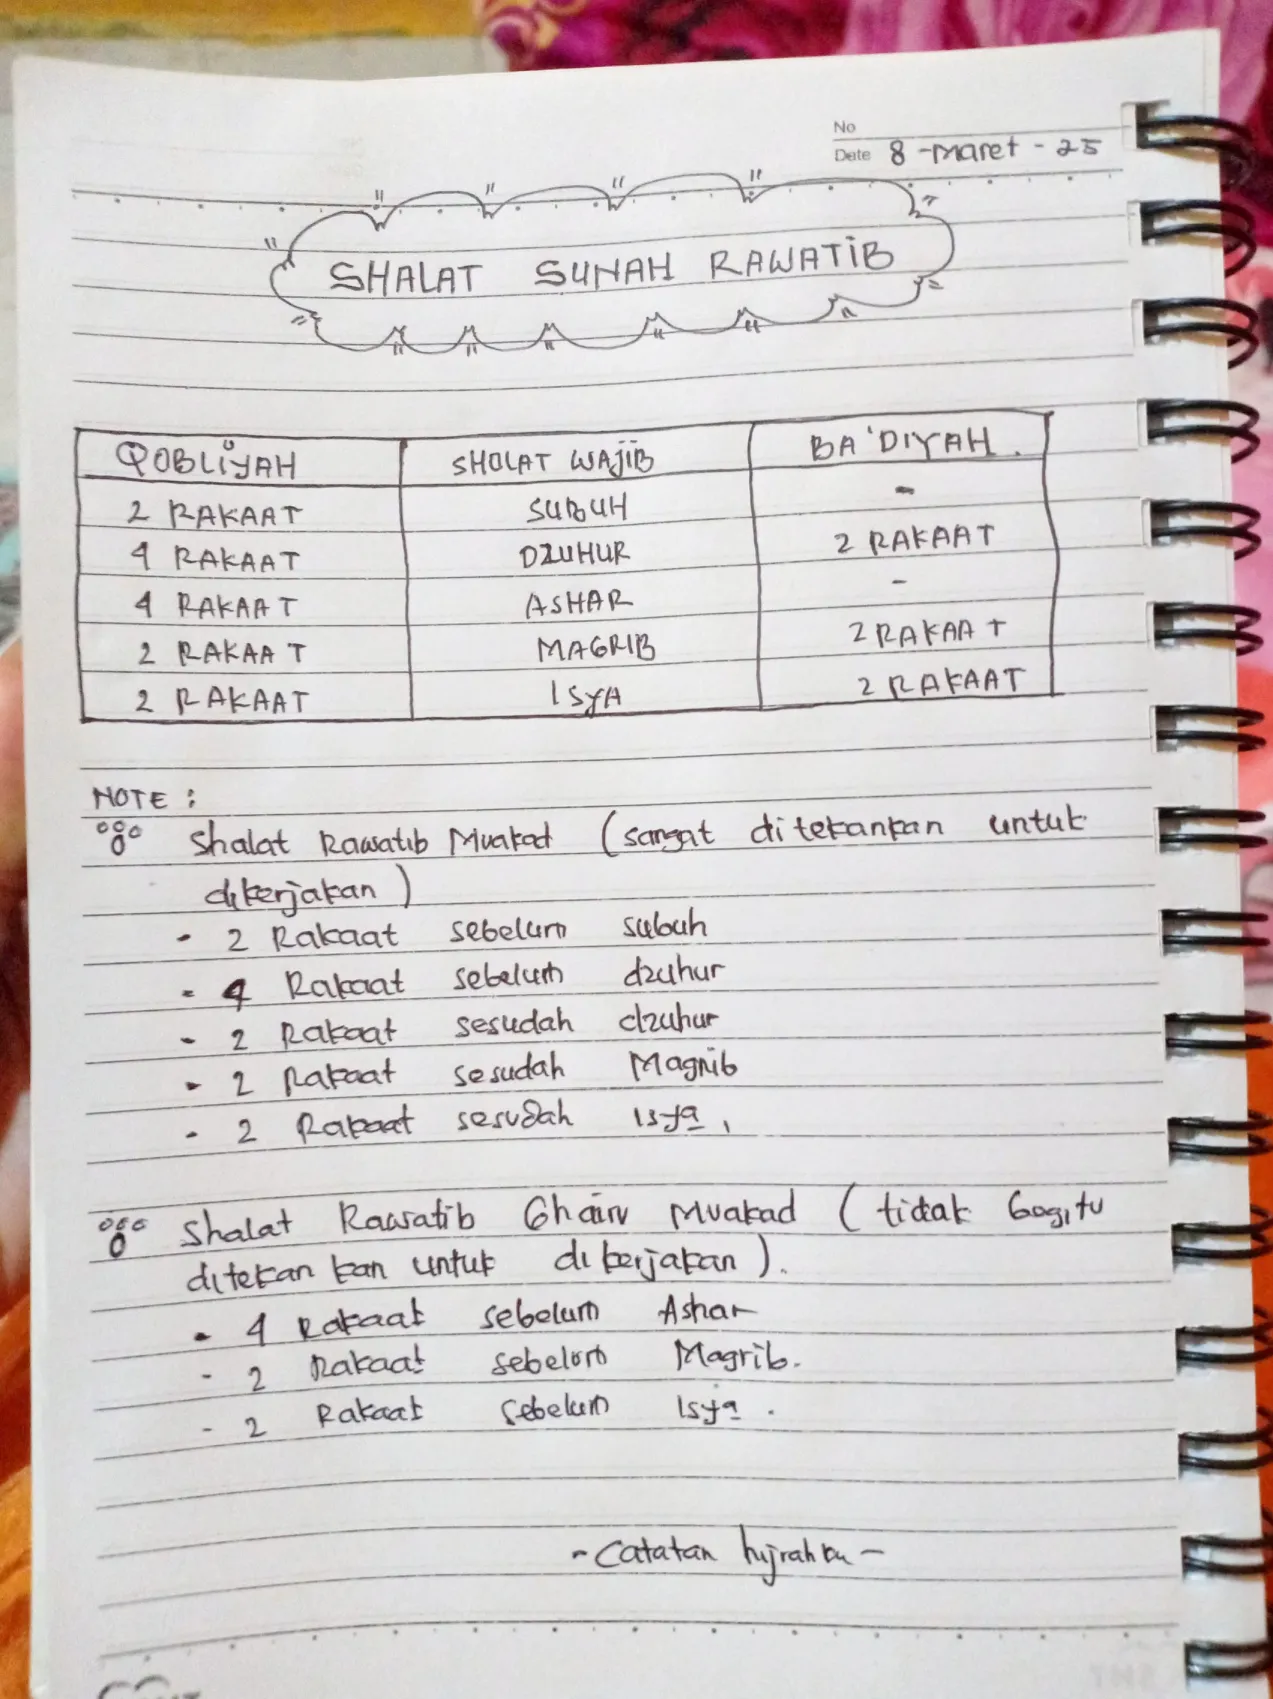 No
Date 8 - Maret - 25
SHALAT SUNAH RAWATIB
QOBLIYAH SHOLAT WAJIB BA'DIYAH.
2 RAKAAT SUBUH -
4 RAKAAT DZUHUR 2 RAKAAT
4 RAKAAT ASHAR -
2 RAKAAT MAGRIB 2 RAKAAT
2 RAKAAT ISYA 2 RAKAAT
NOTE :
Shalat Rawatib Muakad (sangat ditekankan untuk
dikerjakan)
- 2 Rakaat sebelum subuh
- 4 Rakaat sebelum dzuhur
- 2 Rakaat sesudah dzuhur
- 2 Rakaat sesudah Magrib
- 2 Rakaat sesudah Isya,
Shalat Rawatib Ghairu Muakad (tidak begitu
ditekankan untuk dikerjakan).
- 4 Rakaat sebelum Ashar
- 2 Rakaat sebelum Magrib.
- 2 Rakaat sebelum Isya.
- Catatan hijrahku -